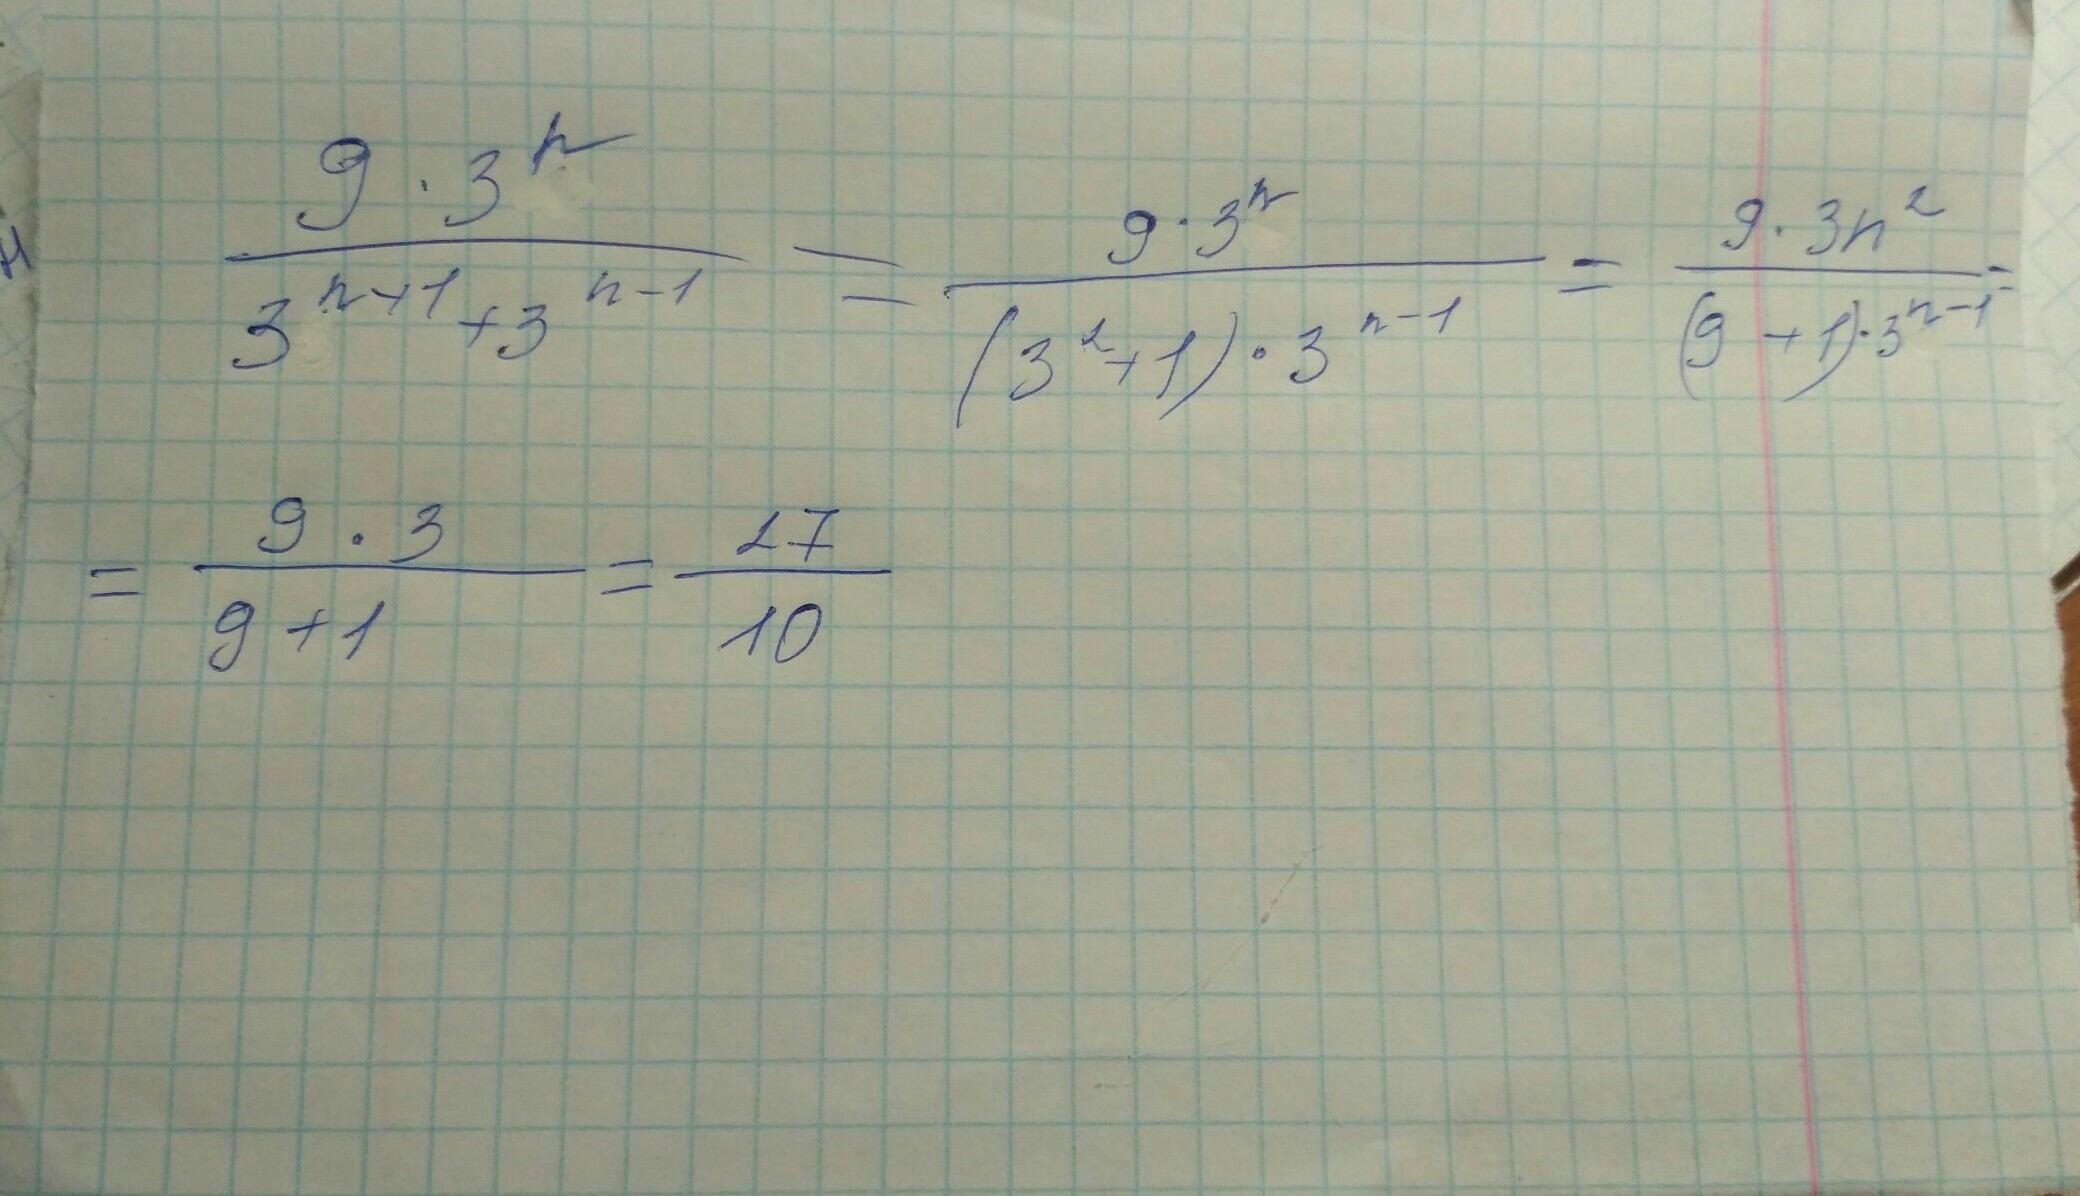 \frac{9 \cdot 3^{n}}{3^{n+1} + 3^{n-1}} = \frac{9 \cdot 3^{n}}{(3^{2} + 1) \cdot 3^{n-1}} = \frac{9 \cdot 3n^{2}}{(9 + 1) \cdot 3^{n-1}} =
= \frac{9 \cdot 3}{9 + 1} = \frac{27}{10}